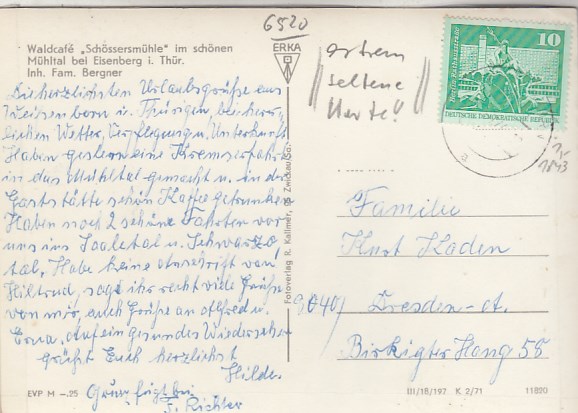 6520
Waldcafé „Schössersmühle" im schönen
Mühltal bei Eisenberg i. Thür.
Inh. Fam. Bergner
ERKA
extrem
seltene
Karte!
10
Berlin, Rathausstraße
DEUTSCHE DEMOKRATISCHE REPUBLIK
1843
Die herzlichsten Urlaubsgrüße aus
Weisenborn i. Thüringen bei herr-
lichen Wetter, Verpflegung u. Unterkunft
Haben gestern eine Kremserfahrt
in das Mühltal gemacht u. in der
Gaststätte schön Kaffee getrunken
Haben noch 2 schöne Fahrten vor
uns ins Saaletal u. Schwarza
tal, Habe keine Anschrift von
Hiltrud, sage ihr recht viele Grüße
von mir, auch Grüße an Alfred u.
Erna. Auf ein gesundes Wiedersehn
grüßt Euch herzlichst
Hilde.
Gruß fügt bei
F. Richter
Fotoverlag R. Kallmer, 95 Zwickau/Sa.
Familie
Kurt Kaden
8040 Dresden-A.
Birkigter Hang 58
EVP M –.25
III/18/197 K 2/71
11890